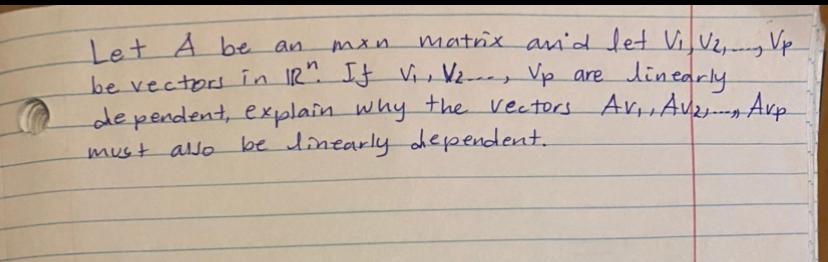 Let A be an mxn matrix and let V1, V2, ..., Vp
be vectors in ℝⁿ. If V1, V2..., Vp are linearly
dependent, explain why the vectors Av1, Av2, ..., Avp
must also be linearly dependent.